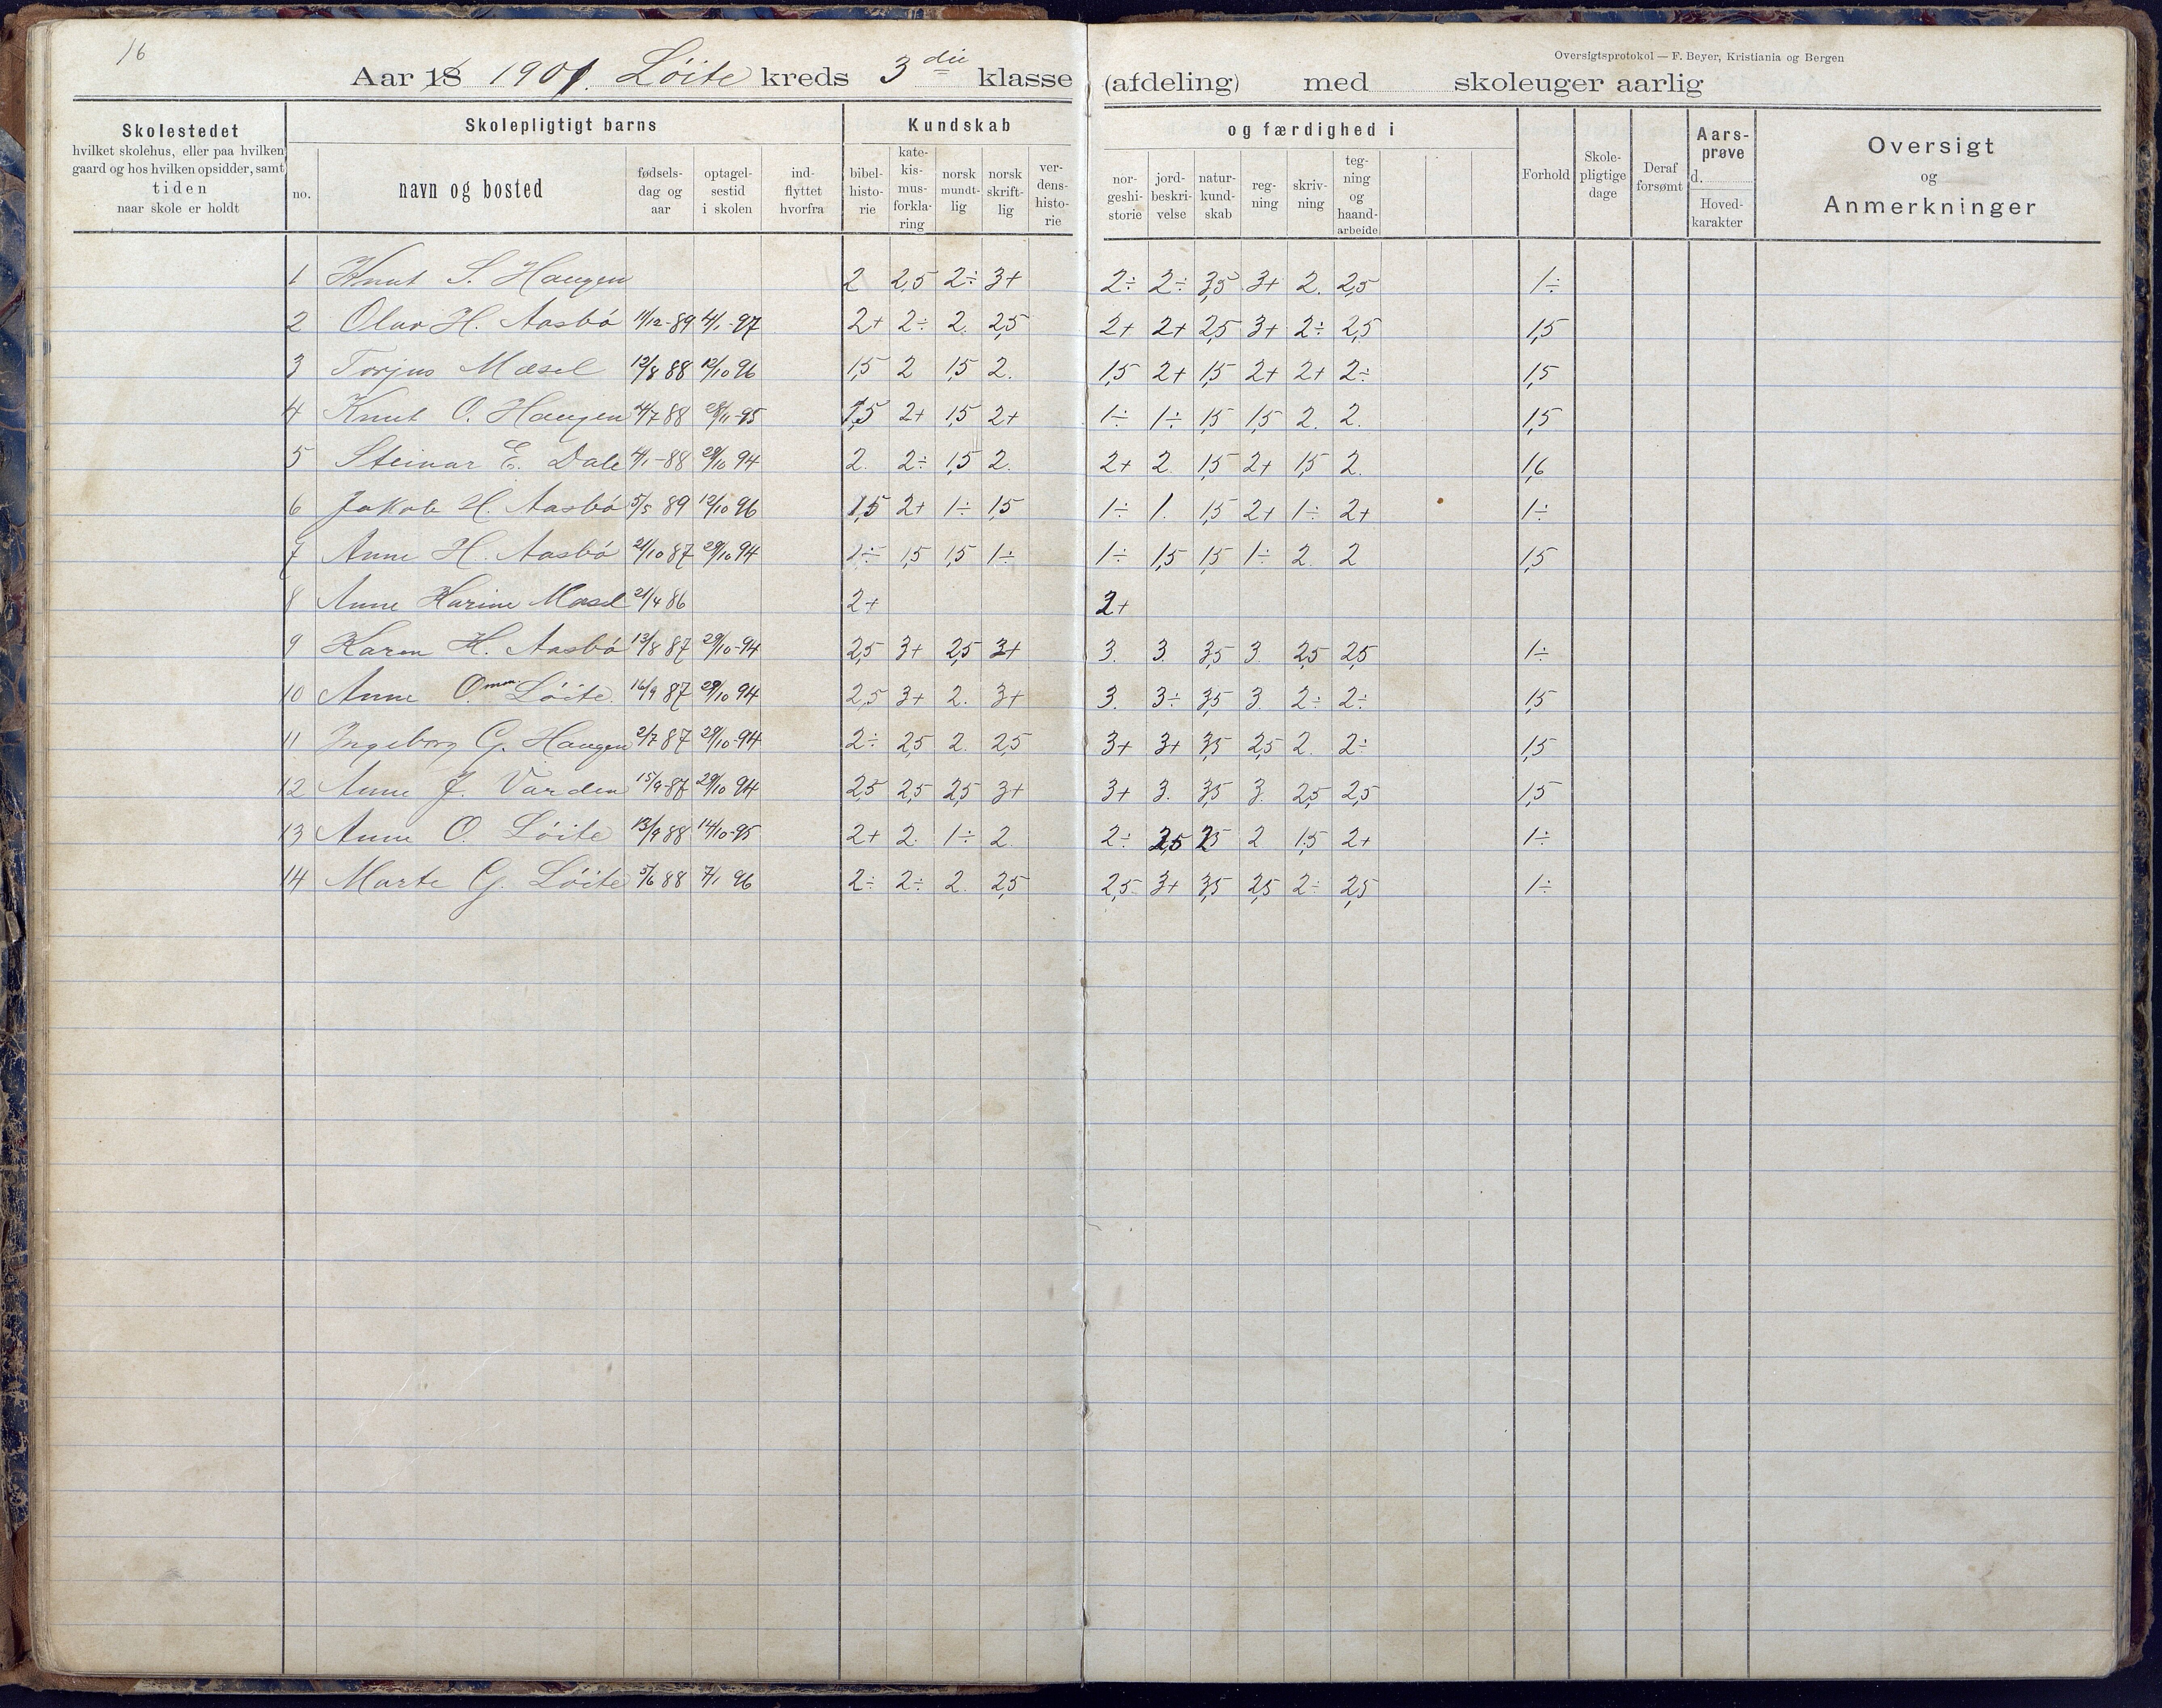 16
Oversigtsprotokol — F. Beyer, Kristiania og Bergen
Aar 18 1901. Löite kreds 3die klasse (afdeling) med skoleuger aarlig
Skolestedet hvilket skolehus, eller paa hvilken gaard og hos hvilken opsidder, samt tiden naar skole er holdt
Skolepligtigt barns
no. navn og bosted fødsels-dag og aar optagel-sestid i skolen ind-flyttet hvorfra
Kundskab og færdighed i
bibel-histo-rie kate-kis-mus-forkla-ring norsk mundt-lig norsk skrift-lig ver-dens-histo-rie nor-geshi-storie jord-beskri-velse natur-kund-skab reg-ning skriv-ning teg-ning og haand-arbeide
Forhold Skole-pligtige dage Deraf forsømt Aars-prøve d. Hoved-karakter Oversigt og Anmerkninger
1 Knut S. Haugen 2 2,5 2÷ 3+ 2÷ 2÷ 3,5 3+ 2. 2,5 1÷
2 Olav H. Aasbö 11/12-89 4/1-97 2+ 2÷ 2. 2,5 2+ 2+ 2,5 3+ 2÷ 2,5 1,5
3 Torjus Mæsel 12/8 88 12/10 96 1,5 2 1,5 2. 1,5 2+ 1,5 2+ 2+ 2÷ 1,5
4 Knut O. Haugen /7 88 /11-95 1,5 2+ 1,5 2+ 1÷ 1÷ 1,5 1,5 2. 2. 1,5
5 Steinar E. Dale 4/1-88 29/10 94 2. 2÷ 1,5 2. 2+ 2. 1,5 2+ 1,5 2. 1,6
6 Jakob H. Aasbö 5/5 89 12/10 96 1,5 2+ 1÷ 1,5 1÷ 1. 1,5 2+ 1÷ 2+ 1÷
7 Anne H. Aasbö 21/10 87 29/10 94 1÷ 1,5 1,5 1÷ 1÷ 1,5 1,5 1÷ 2. 2 1,5
8 Anne Karine Mæsel 21/4 86 2+ 2+
9 Karen H. Aasbö 13/8 87 29/10-94 2,5 3+ 2,5 3+ 3. 3. 3,5 3. 2,5 2,5 1÷
10 Anne O. Löite. 16/9 87 29/10 94 2,5 3+ 2. 3+ 3. 3÷ 3,5 3. 2÷ 2÷ 1,5
11 Ingeborg G. Haugen 2/7 87 29/10-94 2÷ 2,5 2. 2,5 3+ 3+ 3,5 2,5 2. 2÷ 1,5
12 Anne J. Varden 15/9-87 29/10 94 2,5 2,5 2,5 3+ 3+ 3. 3,5 3. 2,5 2,5 1,5
13 Anne O. Löite 13/9 88 14/10-95 2+ 2. 1÷ 2. 2÷ 2,5 2,5 2 1,5 2+ 1÷
14 Marte G. Löite 5/6 88 7/1 96 2÷ 2÷ 2. 2,5 2,5 3+ 3,5 2,5 2÷ 2,5 1÷